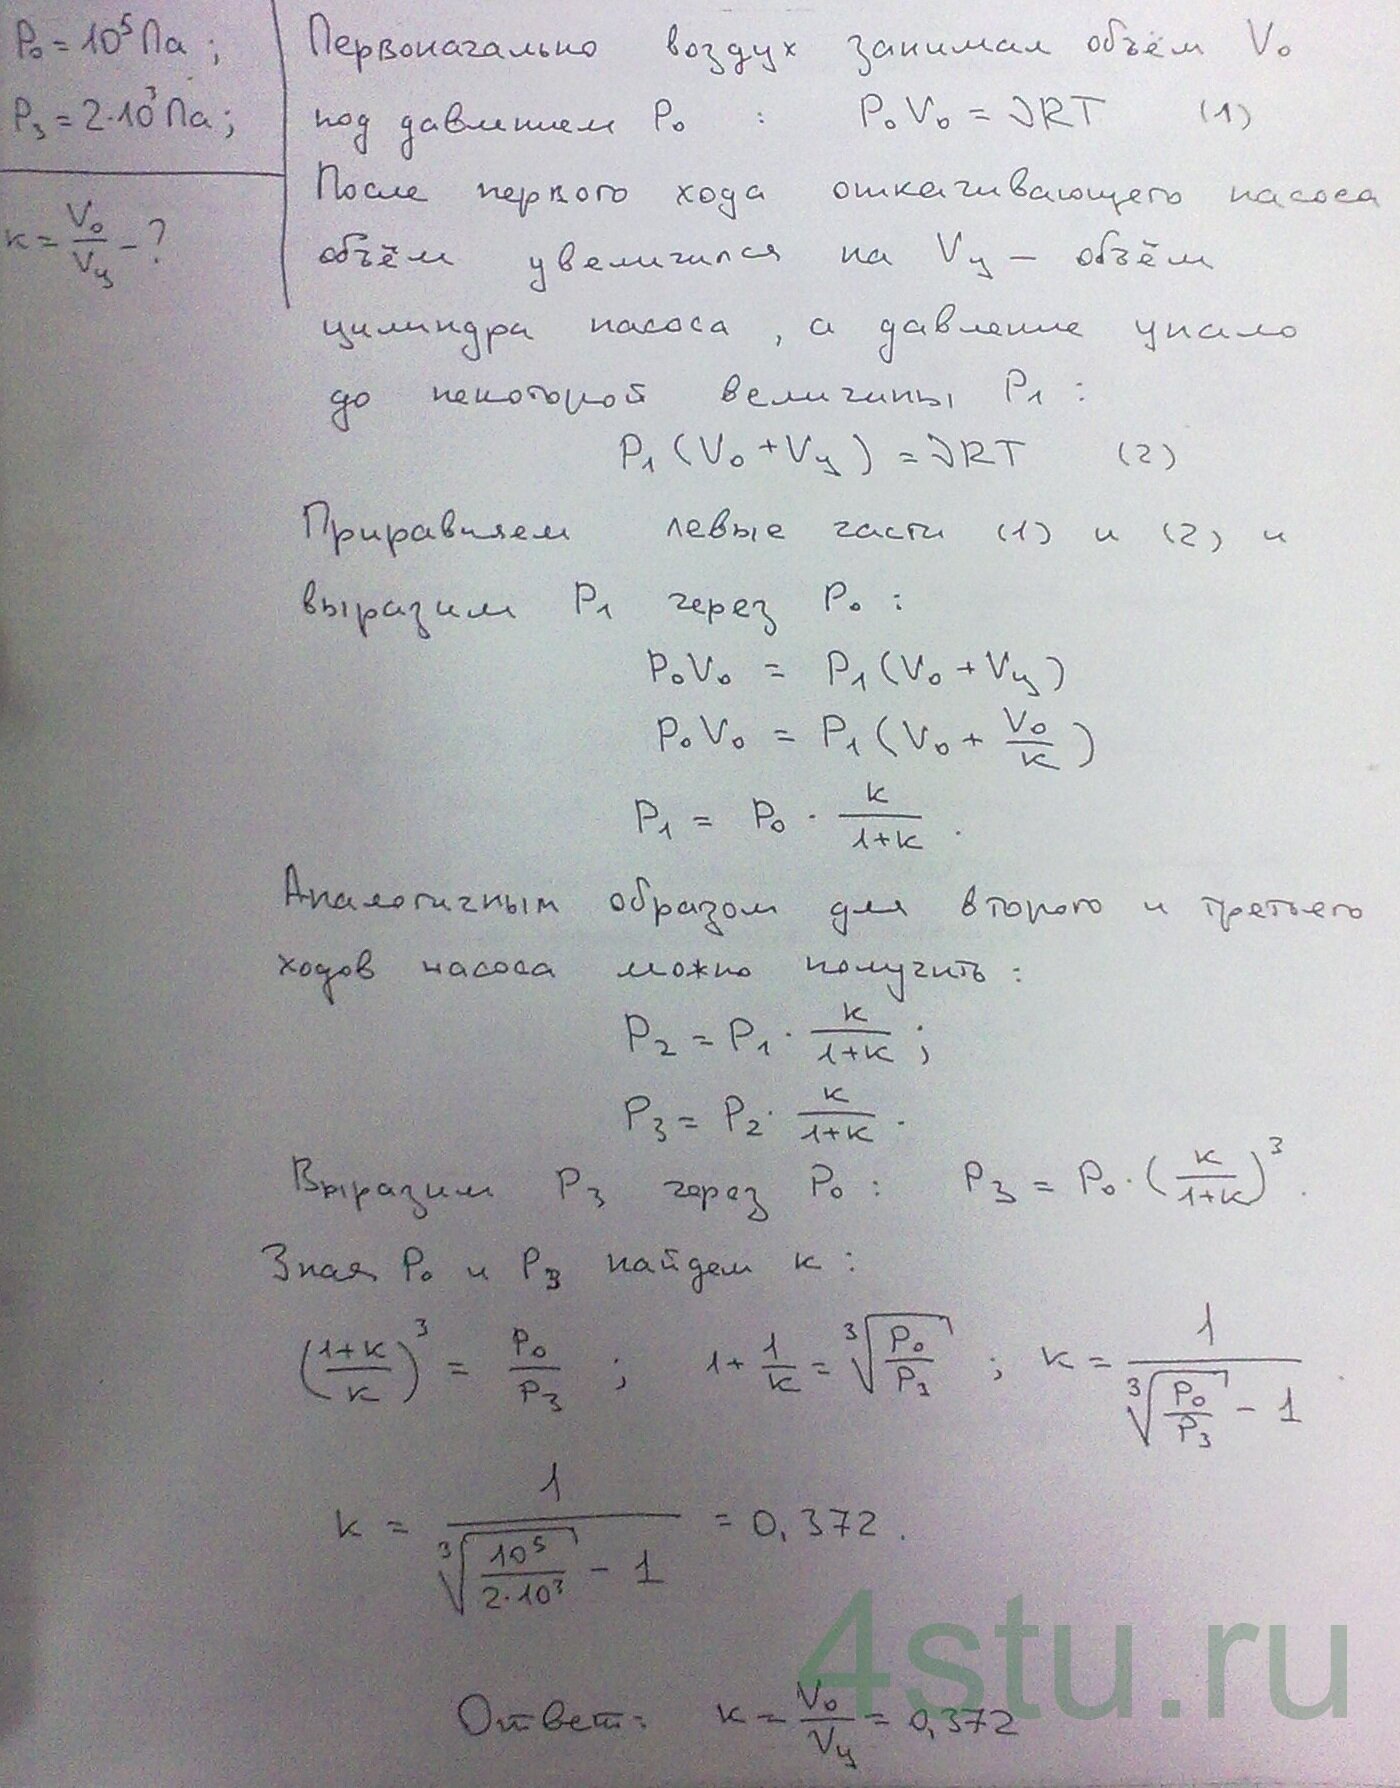 P₀ = 10⁵ Па ;
P₃ = 2·10³ Па ;
к = V₀/Vц - ?
Первоначально воздух занимал объём V₀
под давлением P₀ : P₀V₀ = νRT (1)
После первого хода откачивающего насоса
объём увеличился на Vц – объём
цилиндра насоса , а давление упало
до некоторой величины P₁ :
P₁(V₀ + Vц) = νRT (2)
Приравняем левые части (1) и (2) и
выразим P₁ через P₀ :
P₀V₀ = P₁(V₀ + Vц)
P₀V₀ = P₁(V₀ + V₀/к)
P₁ = P₀ · к/(1+к) .
Аналогичным образом для второго и третьего
ходов насоса можно получить :
P₂ = P₁ · к/(1+к) ;
P₃ = P₂ · к/(1+к) .
Выразим P₃ через P₀ : P₃ = P₀ · (к/(1+к))³ .
Зная P₀ и P₃ найдем к :
((1+к)/к)³ = P₀/P₃ ; 1 + 1/к = ∛(P₀/P₃) ; к = 1/(∛(P₀/P₃) - 1)
к = 1/(∛(10⁵/(2·10³)) - 1) = 0,372 .
4stu.ru
Ответ: к = V₀/Vц = 0,372